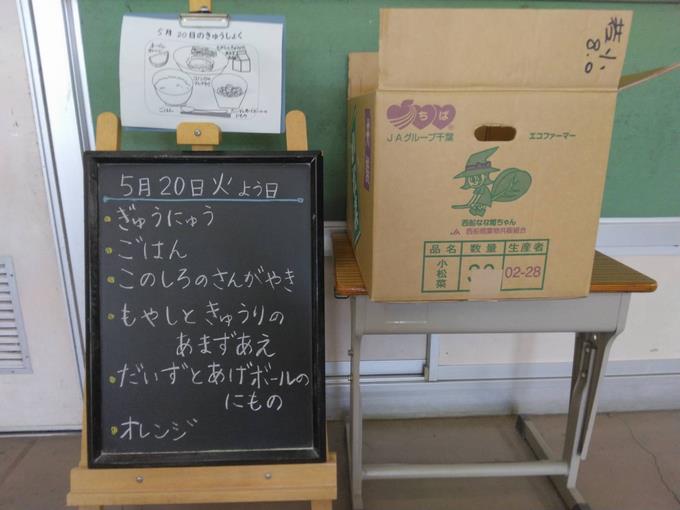 5月 20日のきゅうしょく
ごはん
5月20日火よう日
ぎゅうにゅう
ごはん
このしろのさんがやき
もやしときゅうりの
あまずあえ
だいずとあげボールの
にもの
オレンジ
8.0
ちば
JAグループ千葉
エコファーマー
西船なな姫ちゃん
JA 西船橋葉物共販組合
品名 数量 生産者
小松菜 02-28